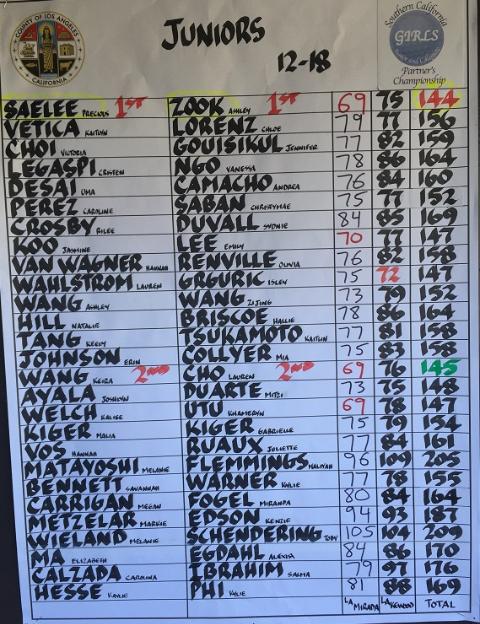 COUNTY OF LOS ANGELES
CALIFORNIA
JUNIORS
12-18
Southern California
GIRLS
Partner's
Championship
SAELEE PRECIOUS 1st ZOOK ASHLEY 1st 69 75 144
VETICA KAITLYN LORENZ CHLOE 79 77 156
CHOI VICTORIA GOUISIKUL JENNIFER 77 82 159
LEGASPI CRISTEN NGO VANESSA 78 86 164
DESAI UMA CAMACHO ANDREA 76 84 160
PEREZ CAROLINE SABAN CHRISTYMAE 75 77 152
CROSBY RILEE DUVALL 84 85 169
KOO JASMINE LEE EMILY 70 77 147
VAN WAGNER HANNAH RENVILLE OLIVIA 76 82 158
WAHLSTROM LAUREN GRGURIC ISLEY 75 72 147
WANG ASHLEY WANG ZIJING 73 79 152
HILL NATALIE BRISCOE HALLIE 78 86 164
TANG KEELY TSUKAMOTO KAITLIN 77 81 158
JOHNSON ERIN COLLYER MIA 75 83 158
WANG KEIRA 2nd CHO LAUREN 2nd 69 76 145
AYALA JOSHLYN DUARTE MITZI 73 75 148
WELCH KALISE UTU KHAMERYN 69 78 147
KIGER MALIA KIGER GABRIELLE 75 79 154
VOS HANNAH RUAUX JULIETTE 77 84 161
MATAYOSHI MELANIE FLEMMINGS 96 109 205
BENNETT SAVANNAH WARNER KYLIE 77 78 155
CARRIGAN MEGAN FOGEL MIRANDA 80 84 164
METZELAR MARKIE EDSON KENZIE 94 93 187
WIELAND MELANIE SCHENDERING TORY 105 104 209
MA ELIZABETH EGDAHL ALEXIA 84 86 170
CALZADA CAROLINA IBRAHIM SALMA 79 97 176
HESSE KAYLIE PHI KYLIE 81 88 169
LA MIRADA LAKEWOOD TOTAL